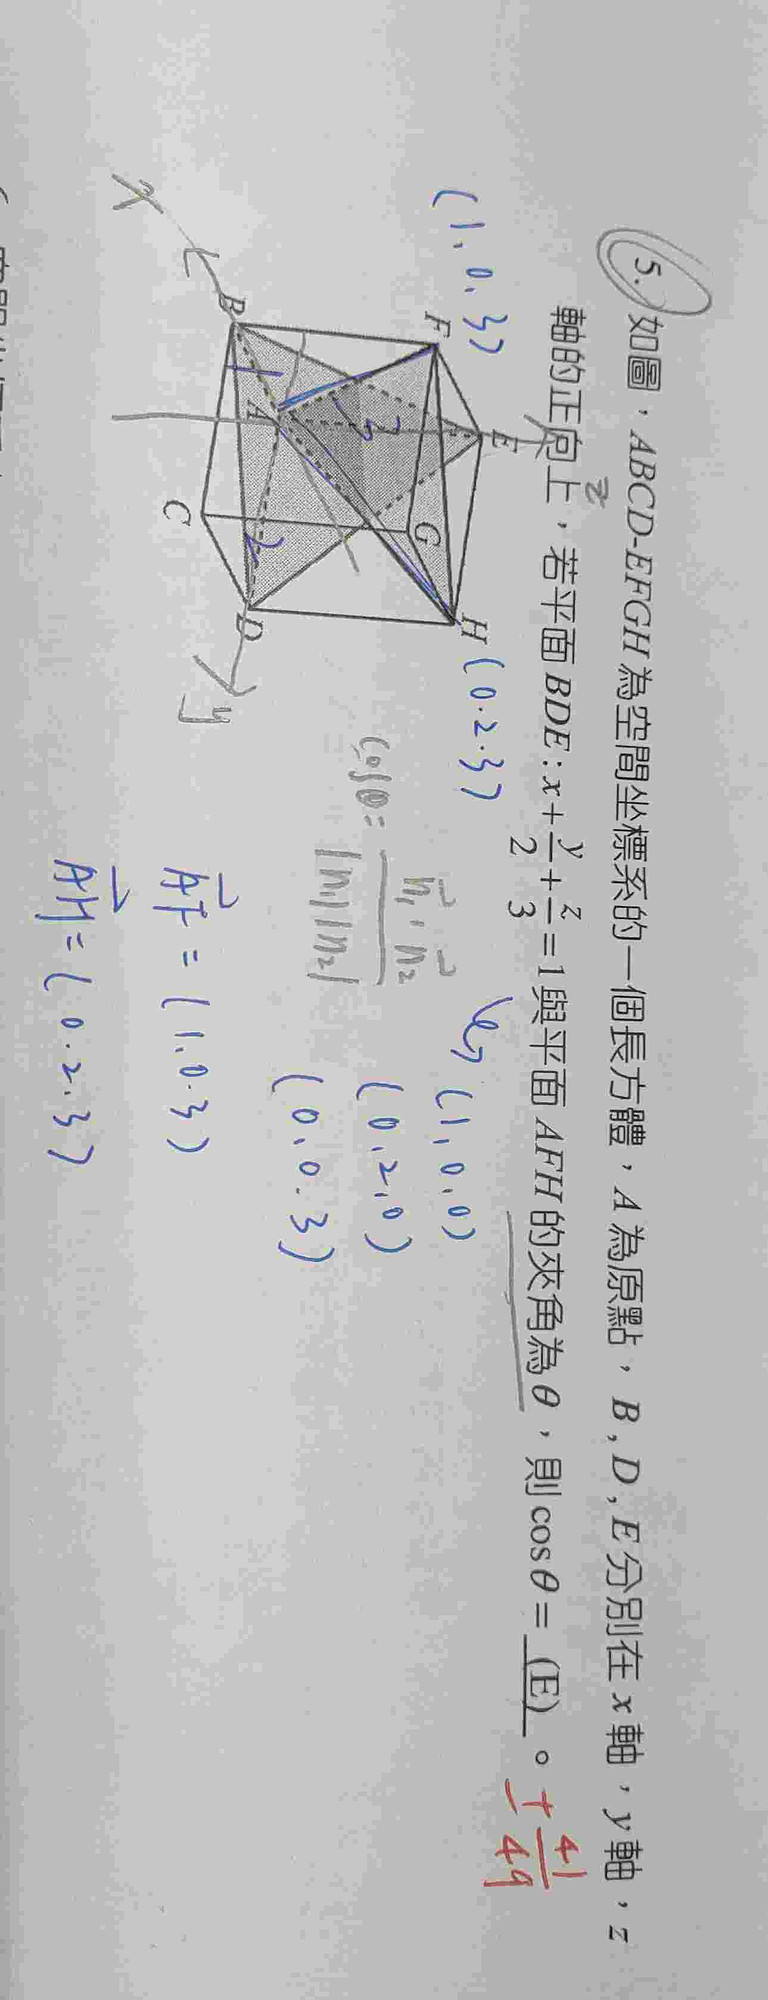 5. 如圖，ABCD-EFGH為空間坐標系的一個長方體，A為原點，B，D，E分別在x軸，y軸，z
軸的正向上，若平面BDE：x+y/2+z/3=1與平面AFH的夾角為θ，則cosθ= (E) 。
± 41/49
z
(1,0,3)
F
E
H (0,2,3)
G
3
B
A
1
2
C
D
x
y
cosθ = n₁·n₂ / |n₁||n₂|
(1,0,0)
(0,2,0)
(0,0,3)
AF = (1,0,3)
AH = (0,2,3)